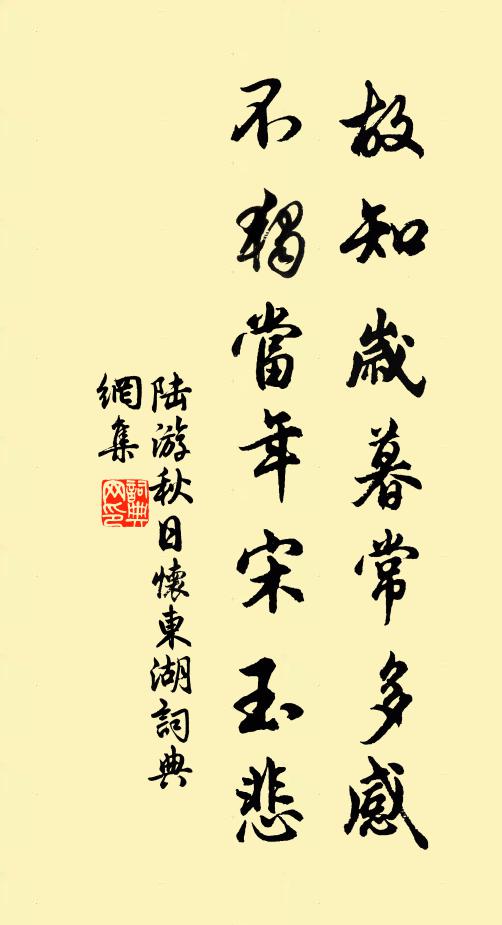 故知歲暮常多感
不獨當年宋玉悲
陆游秋日懷東湖詞典
網集
詞典
网印